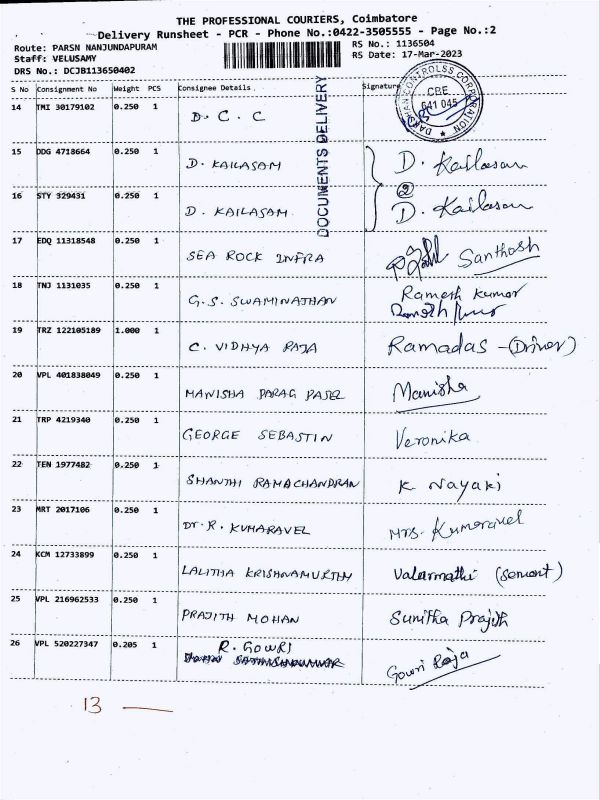 THE PROFESSIONAL COURIERS, Coimbatore
Delivery Runsheet - PCR - Phone No.:0422-3505555 - Page No.:2
Route: PARSN NANJUNDAPURAM RS No.: 1136504
Staff: VELUSAMY RS Date: 17-Mar-2023
DRS No.: DCJB113650402
S No Consignment No Weight PCS Consignee Details Signature
DOCUMENTS DELIVERY
CBE
641 045
14 TMI 30179102 0.250 1 D. C. C
15 DDG 4718664 0.250 1 D. KAILASAM D. Kailasam
②
16 STY 329431 0.250 1 D. KAILASAM D. Kailasam
17 EDQ 11318548 0.250 1 SEA ROCK INFRA Santhosh
18 TNJ 1131035 0.250 1 G.S. SWAMINATHAN Ramesh Kumar
19 TRZ 122105189 1.000 1 C. VIDHYA RAJA Ramadas - (Driver)
20 VPL 401838049 0.250 1 MANISHA PARAG PATEL Manisha
21 TRP 4219340 0.250 1 GEORGE SEBASTIN Veronika
22 TEN 1977482 0.250 1 SHANTHI RAMACHANDRAN K Nayaki
23 MRT 2017106 0.250 1 Dr. R. KUMARAVEL Mrs. Kumaravel
24 KCM 12733899 0.250 1 LALITHA KRISHNAMURTHY Valarmathi (Servant)
25 VPL 216962533 0.250 1 PRAJITH MOHAN Sunitha Prajith
26 VPL 520227347 0.205 1 R. GOWRI Gowri Raja
13